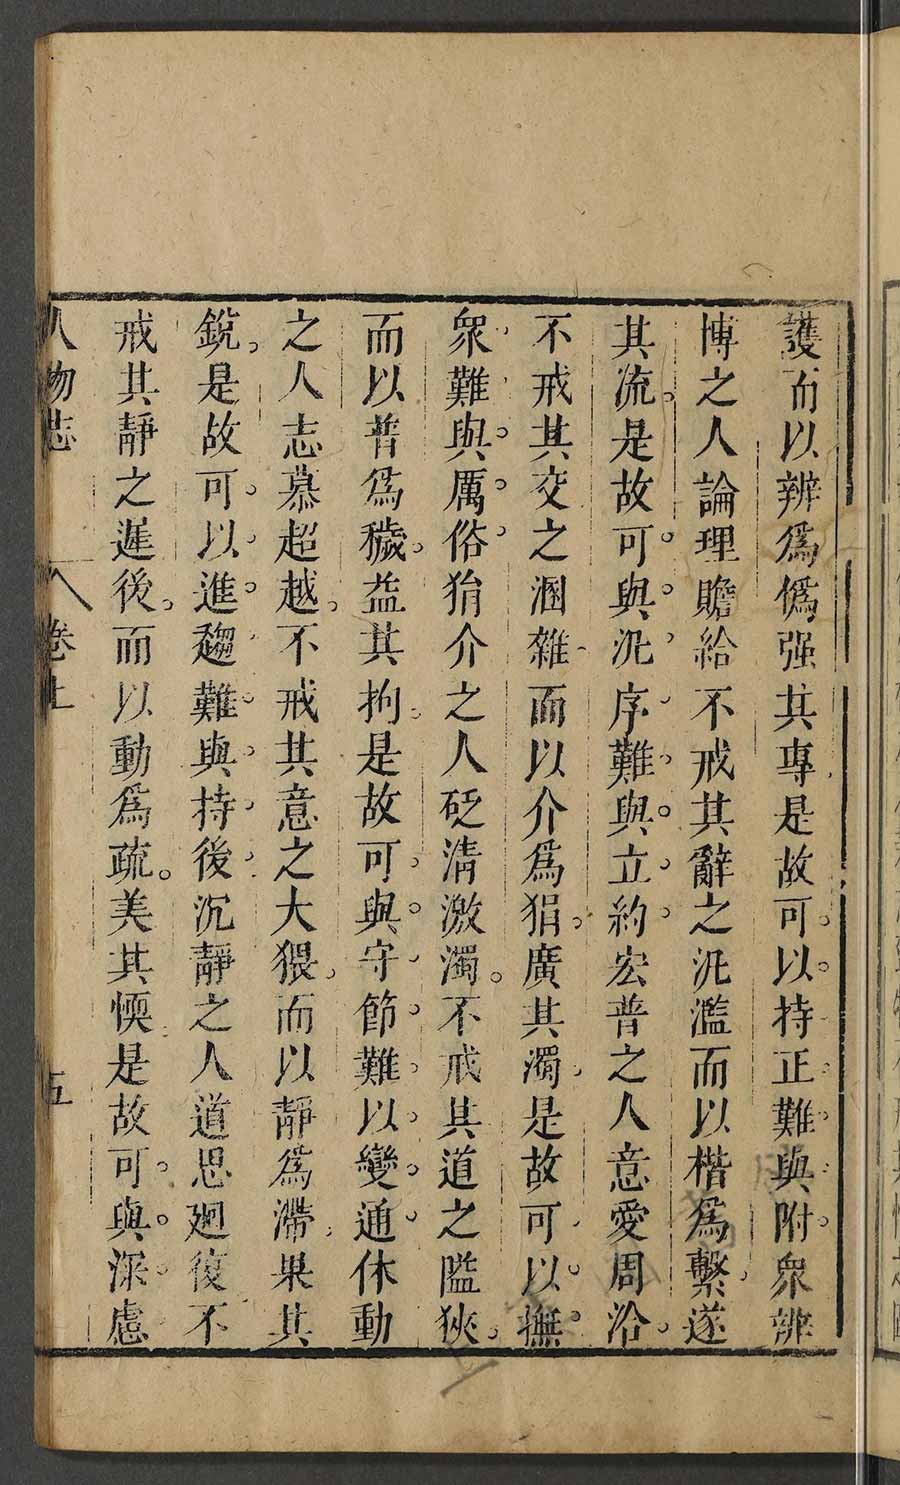 護而以辨爲僞强其專是故可以持正難與附衆辨
博之人論理贍給不戒其辭之汎濫而以楷爲繫遂
其流是故可與汎序難與立約宏普之人意愛周洽
不戒其交之溷雜而以介爲狷廣其濁是故可以撫
衆難與厲俗狷介之人砭清激濁不戒其道之隘狹
而以普爲穢益其拘是故可與守節難以變通休動
之人志慕超越不戒其意之大猥而以靜爲滯果其
銳是故可以進趨難與持後沉靜之人道思廻復不
戒其靜之遲後而以動爲疏美其愞是故可與深慮
人物志 卷上 五